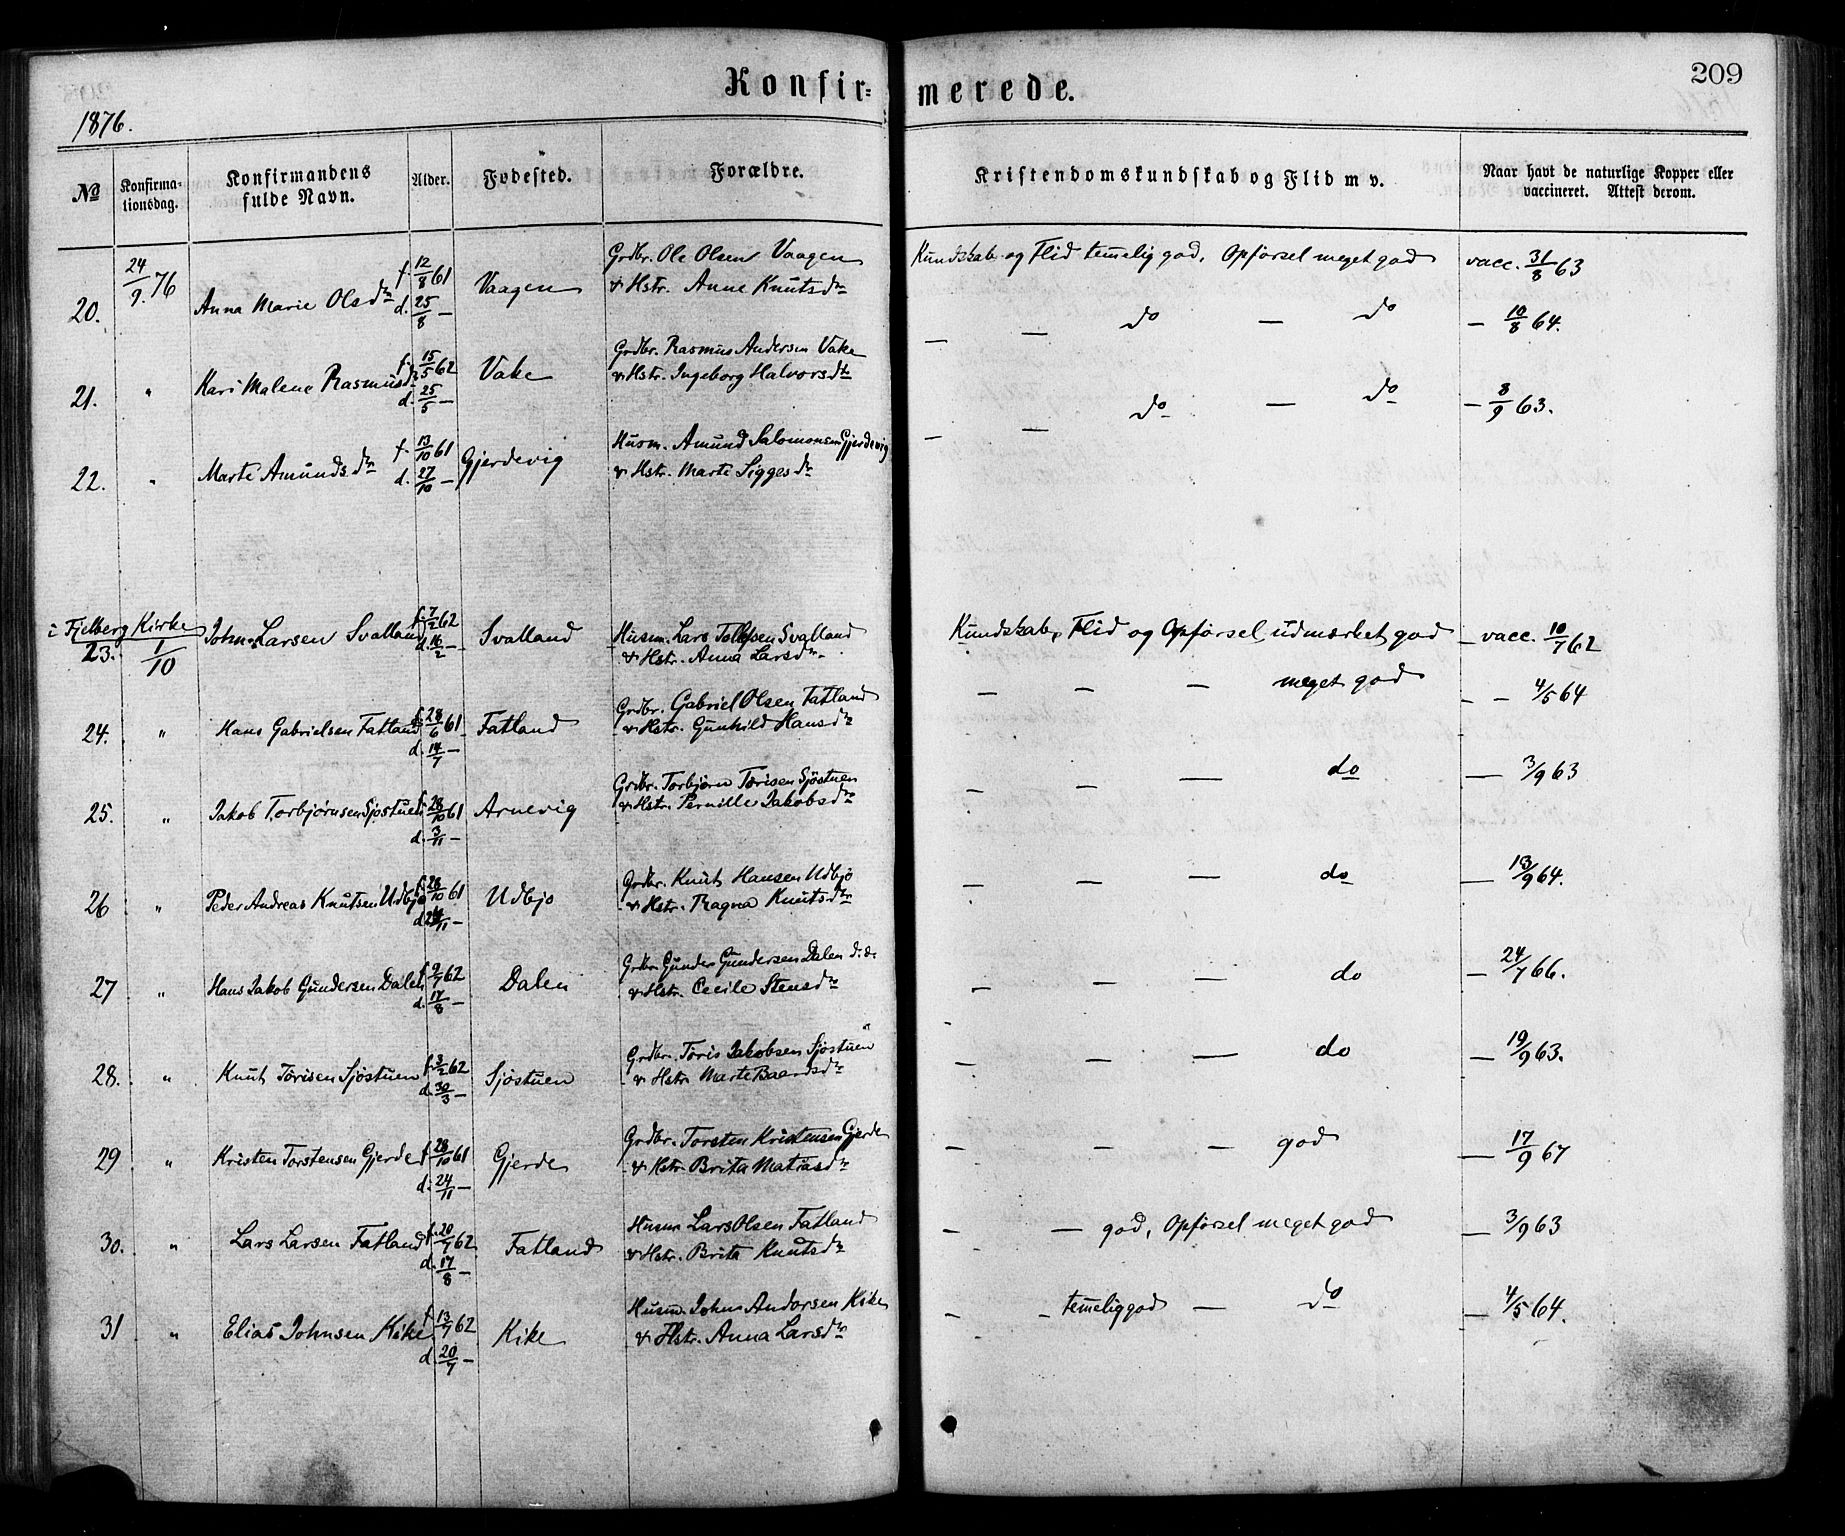 Konfir= merede. 209
1876.
№ Konfirma-tionsdag. Konfirmandens fulde Navn. Alder. Fødested. Forældre. Kristendomskundskab og Flid m v. Naar havt de naturlige Kopper eller vaccineret. Attest derom.
Grdbr. Ole Olsen Vaagen
20. 24/9 76 Anna Marie Olsdtr f. 12/8 61 d. 25/8 — Vaagen & Hstr. Anne Knutsdtr Kundskab og Flid temelig god, Opførsel meget god vacc. 31/8 63
Grdbr. Rasmus Andersen Vake
21. " Kari Malene Rasmusdtr f. 15/5 62 d. 25/5 — Vake & Hstr. Ingeborg Halvorsdtr — — do — do — 10/8 64.
Husm. Amund Salomonsen Gjerdevig
22. " Marte Amundsdtr f. 13/10 61 d. 27/10 — Gjerdevig & Hstr. Marte Siggesdtr — — do — do — 8/9 63.
i Fjelberg Kirke
23. 1/10 John Larsen Svalland f. 7/2 62 d. 16/2 — Svalland Husm. Lars Tollefsen Svalland Kundskab, Flid og Opførsel udmærket god — vacc. 10/7 62
& Hstr. Anna Larsdtr
Grdbr. Gabriel Olsen Fatland
24. " Hans Gabrielsen Fatland f. 28/6 61 d. 14/7 — Fatland & Hstr. Gunhild Hansdtr — — — meget god — — 4/5 64
Grdbr. Torbjørn Tørisen Sjøstuen
25. " Jakob Torbjørnsen Sjøstuen f. 28/10 61 d. 3/11 — Arnevig & Hstr. Pernille Jakobsdtr — — — do — 3/9 63
Grdbr. Knut Hansen Udbjo
26 " Peder Andreas Knutsen Udbjo f. 28/10 61 d. /11 — Udbjo & Hstr. Ragna Knutsdtr — — — do — 13/9 64.
Grdbr. Gunder Gundersen Dalen
27 " Hans Jakob Gundersen Dalen f. 9/7 62 d. 17/8 — Dalen & Hstr. Cecile Stensdtr — — — do — 24/7 66.
Grdbr. Tøris Jakobsen Sjøstuen
28. " Knut Tørisen Sjøstuen f. 3/2 62 d. 30/3 — Sjøstuen & Hstr. Marte Baardsdtr — — — do — 19/9 63.
Grdbr. Torsten Kristensen Gjerde
29 " Kristen Torstensen Gjerde f. 28/10 61 d. 24/11 — Gjerde & Hstr. Brita Matiasdtr — — — god — 17/9 67
Husm Lars Olsen Fatland
30. " Lars Larsen Fatland f. 20/7 62 d. 17/8 — Fatland & Hstr. Brita Knutsdtr — — god, Opførsel meget god — 3/9 63
Husm. John Andersen Kike
31 " Elias Johnsen Kike f. 13/7 62 d. 20/7 — Kike & Hstr. Anna Larsdtr — — temelig god — do — 4/5 64.